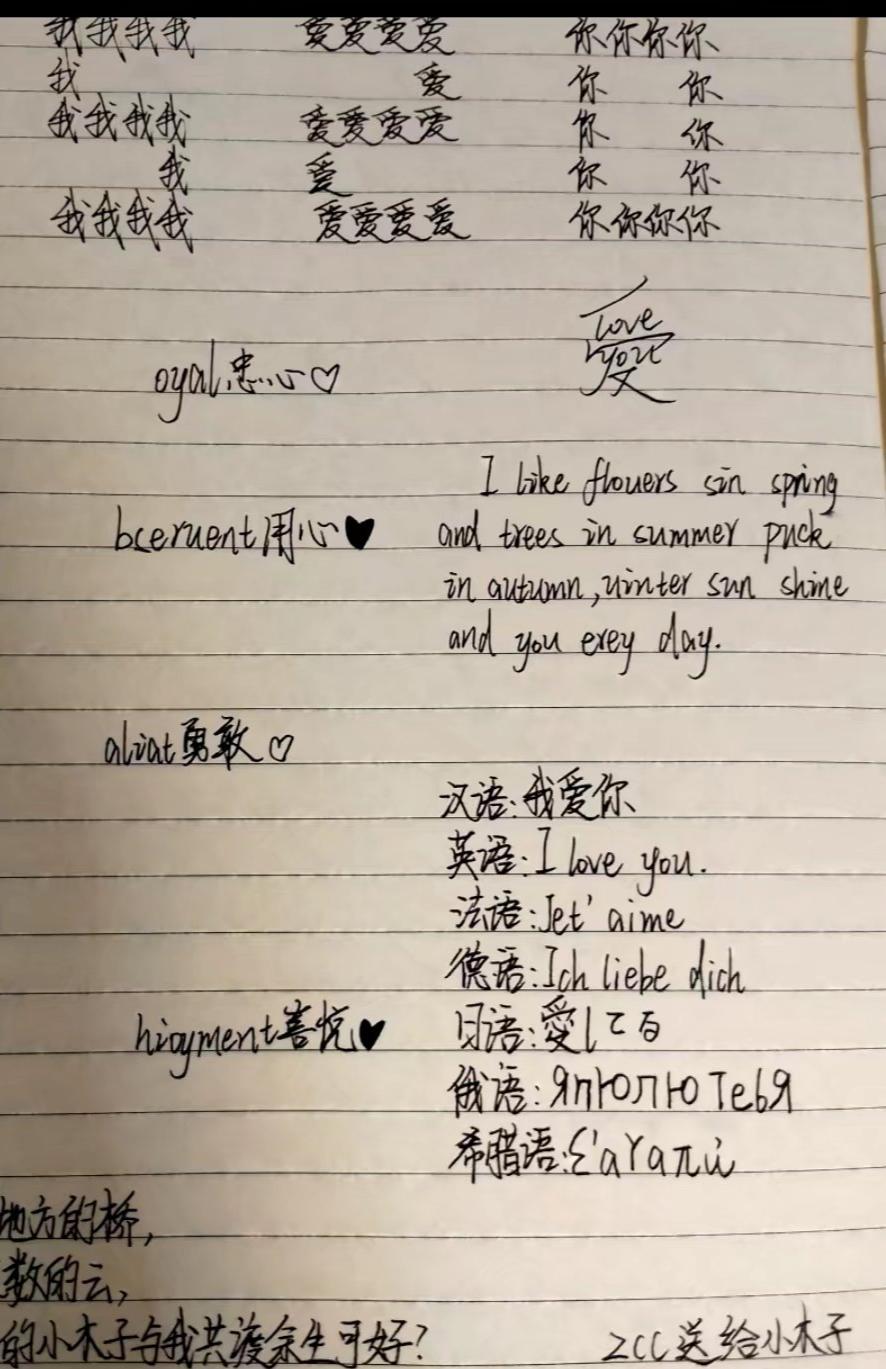 我我我我 爱爱爱爱 你你你你
我 爱 你 你
我我我我 爱爱爱爱 你 你
我 爱 你 你
我我我我 爱爱爱爱 你你你你
love
you
oyal忠心♡
I like flouers sin spring
bseruent用心♥
and trees in summer puck
in autumn,uinter sun shine
and you erey day.
aliat勇敢♡
汉语:我爱你
英语:I love you.
法语:Jet' aime
德语:Ich liebe dich
hioyment喜悦♥
日语:愛してる
俄语:ЯпюплюТебЯ
希腊语:Σ'αγαπώ
地方的桥,
数的云,
的小木子与我共渡余生可好?
zcc送给小木子